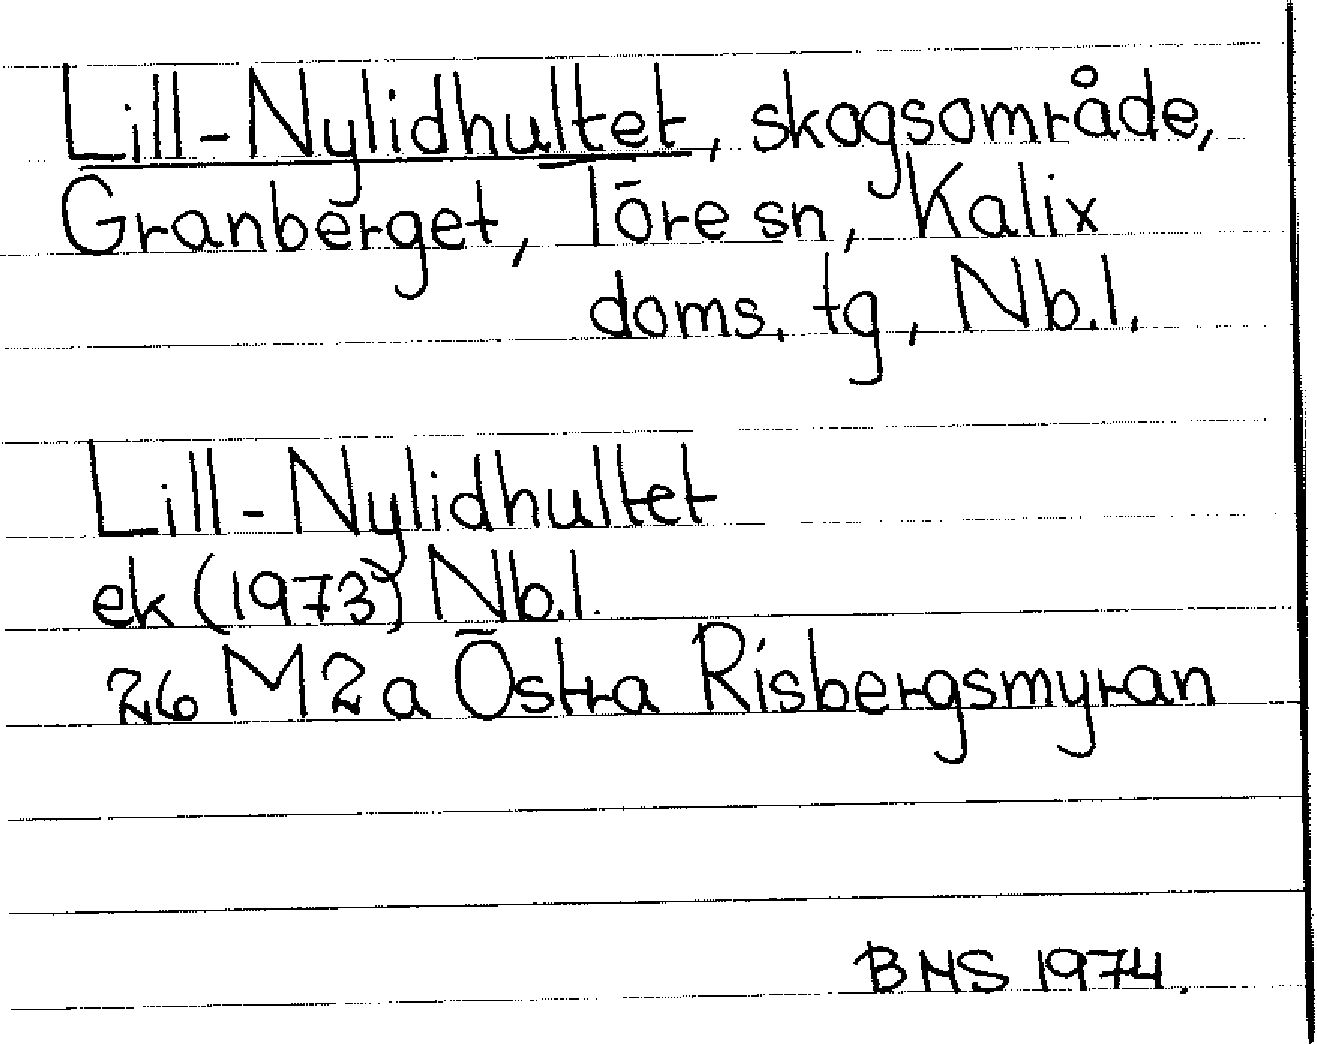 Lill-Nylidhultet, skogsområde,
Granberget, Töre sn, Kalix
doms. tg, Nb.l.
Lill-Nylidhultet
ek (1973) Nb.l.
26 M 2 a Östra Risbergsmyran
BNS 1974.